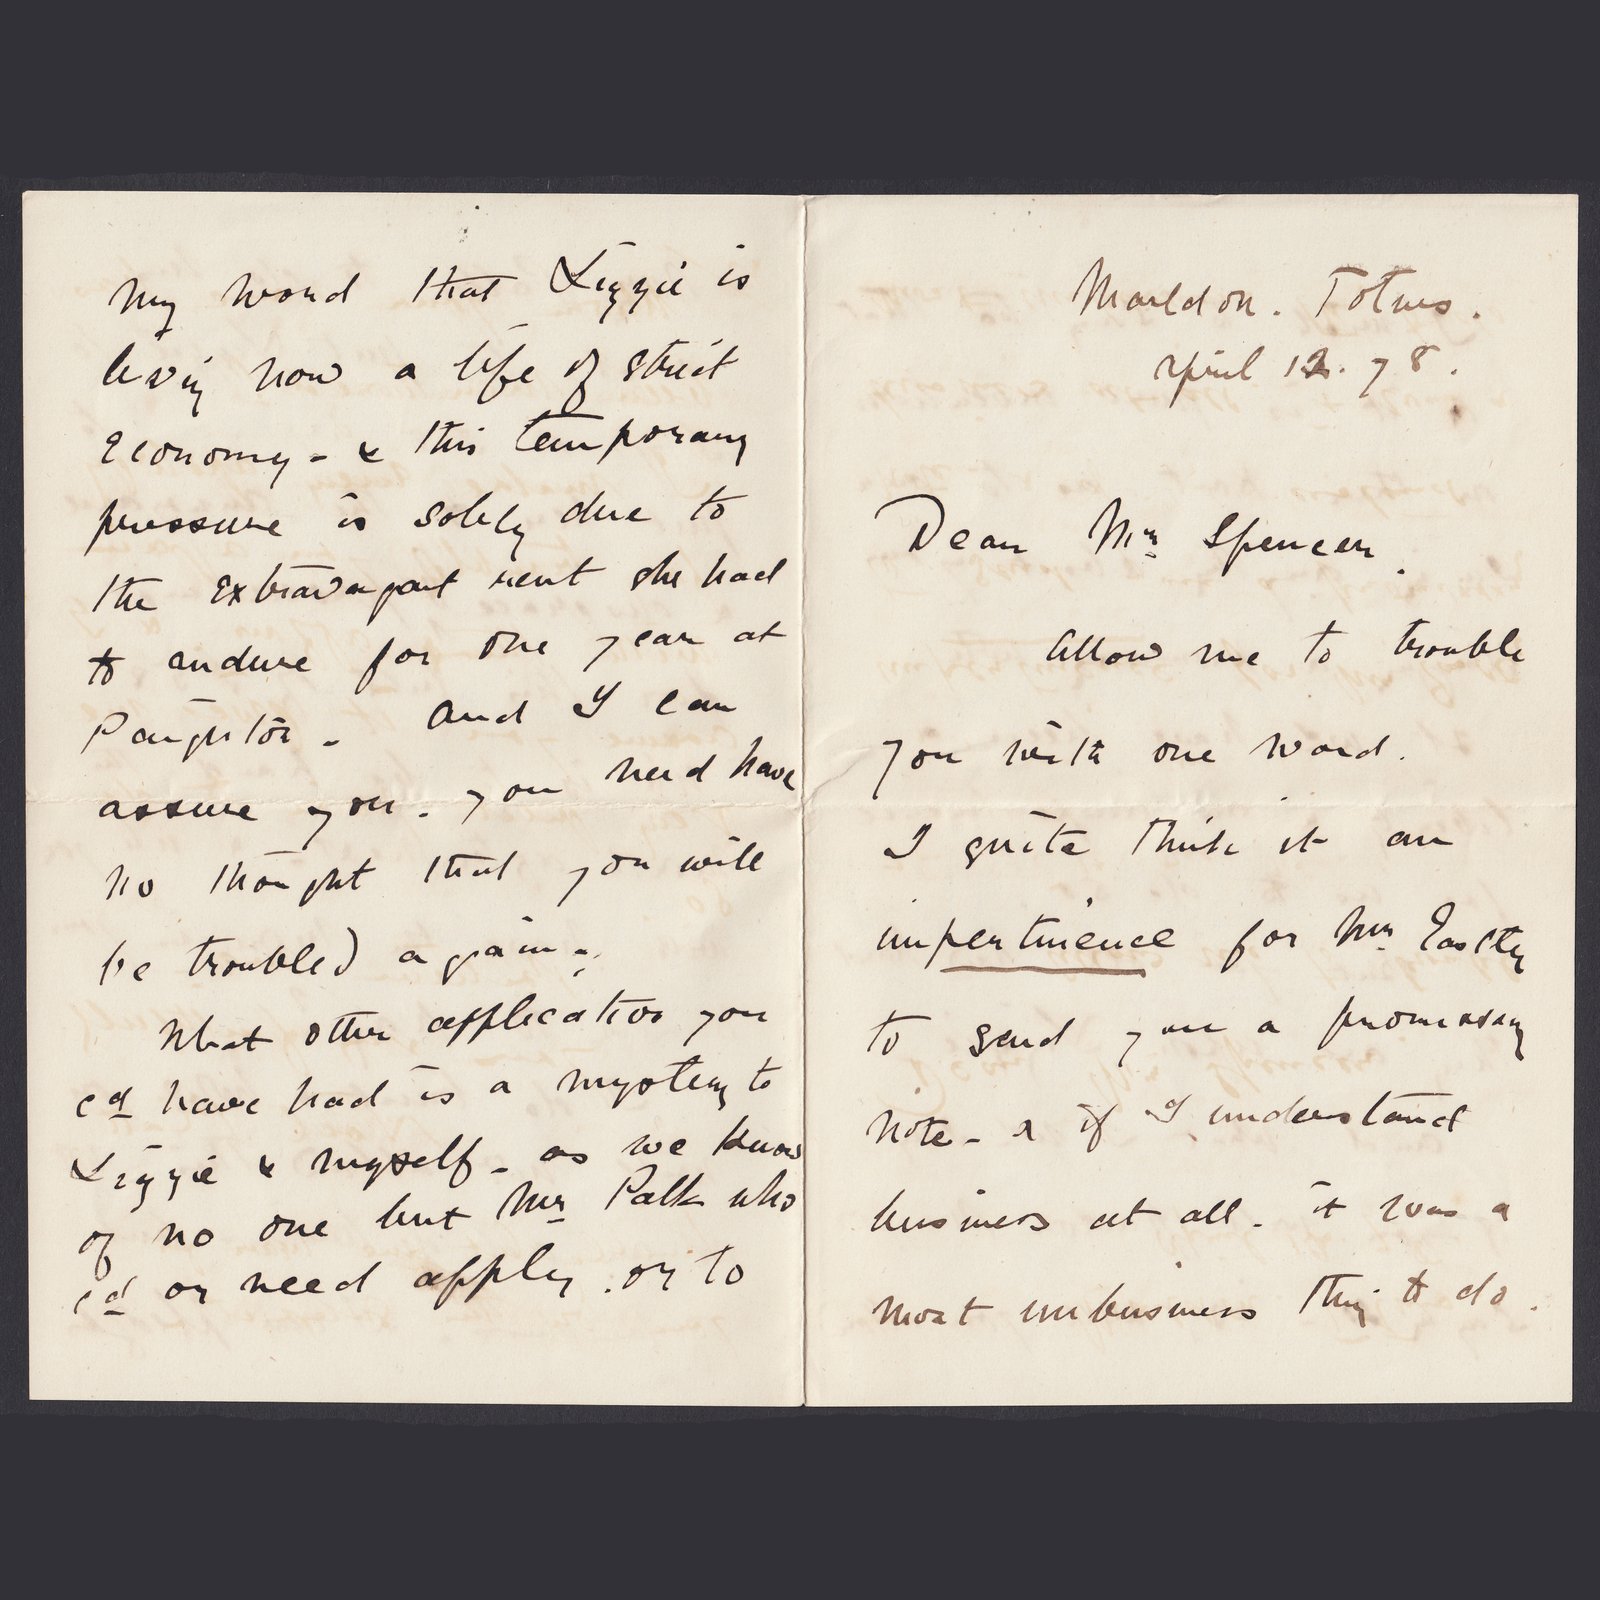 Marldon. Totnes.
April 12. 78.
Dear Mr Spencer.
Allow me to trouble
you with one word.
I quite think it an
impertinence for Mr Eastly
to send you a promissary
note - & if I understand
business at all - it was a
most unbusiness thing to do.
my word that Lizzie is
living now a life of strict
economy - & this temporary
pressure is solely due to
the extravagant rent she had
to endure for one year at
Paignton - and I can
assure you. you need have
no thought that you will
be troubled again -
What other application you
cd have had is a mystery to
Lizzie & myself - as we know
of no one but Mr Palk who
cd or need apply. or to